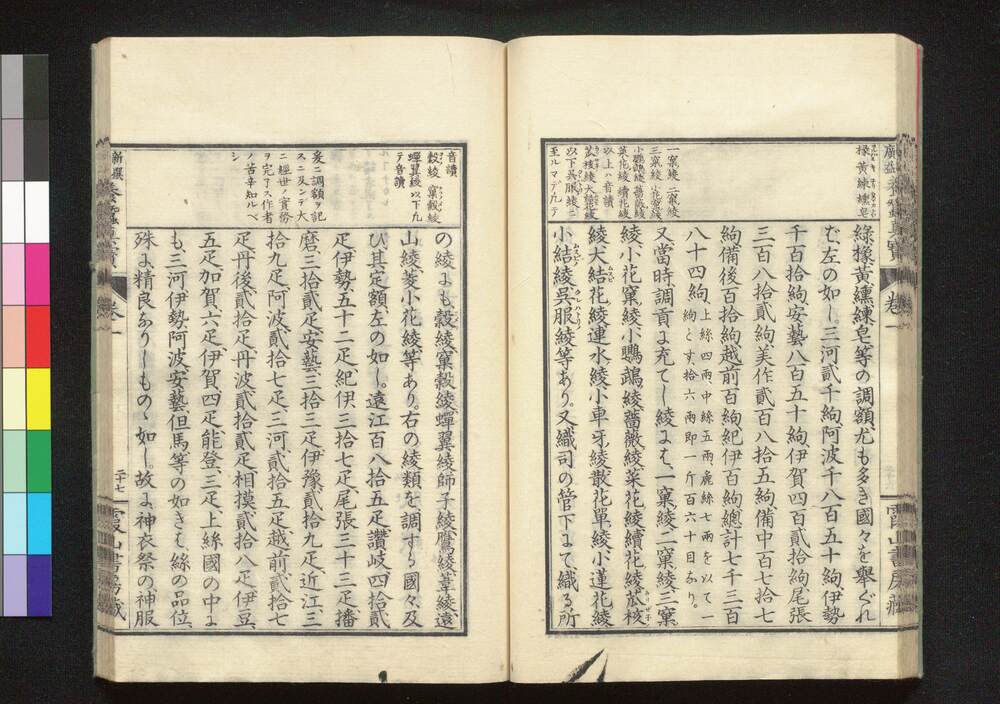 綠橡、黃、纁、練、皂等の調額、尤も多き國々を擧ぐれ
む、左の如し三河貳千絢、阿波千八百五十絢、伊勢
千百拾絢、安藝八百五十絢、伊賀四百貳拾絢、尾張
三百八拾貳絢、美作貳百八拾五絢、備中百七拾七
絢、備後百拾絢、越前百絢、紀伊百絢、總計七千三百
八十四絢、上絲四兩、中絲五兩、麁絲七兩を以て一
絢とす拾六兩即一斤百六十目なり。
又當時、調貢に充てし綾には、一窠綾、二窠綾、三窠
綾、小花窠綾、小鸚鵡綾、薔薇綾、菜花綾、續花綾、菰核
綾、大結花綾、連水綾、小車牙綾、散花單綾、小蓮花綾
小結綾、吳服綾等あり。又織司の管下にて、織る所
一窠綾 二窠綾
三窠綾 小花窠綾
小鸚鵡綾 薔薇綾
以上ハ音讀
菜花綾 續花綾
菰核綾 大結花綾
以下吳服綾ニ
至ルマデ凡テ
霞山書房藏
の綾にも、縠綾、窠縠綾、蟬翼綾、師子綾、鷹綾、葦綾、遠
山綾、菱小花綾等あり。右の綾類を調する國々、及
び、其定額、左の如し。遠江百八拾五疋、讚岐四拾貳
疋、伊勢五十二疋、紀伊三拾七疋、尾張三十三疋、播
磨三拾貳疋、安藝三拾三疋、伊豫貳拾九疋、近江三
拾九疋、阿波貳拾七疋、三河貳拾五疋、越前貳拾七
疋、丹後貳拾疋、丹波貳拾貳疋、相摸貳拾八疋、伊豆
五疋、加賀六疋、伊賀四疋、能登三疋、上絲國の中に
も、三河、伊勢、阿波、安藝、但馬等の如きは、絲の品位、
殊に精良ありしものゝ如し。故に神衣祭の神服
音讀
縠綾 窠縠綾
蟬翼綾以下凡
テ音讀
爰ニ調額ヲ記
スニ及ンデ大
ニ經世ノ實務
ヲ完了ス作者
ノ苦辛知ルベ
シ
卷一
二十七
霞山書房藏